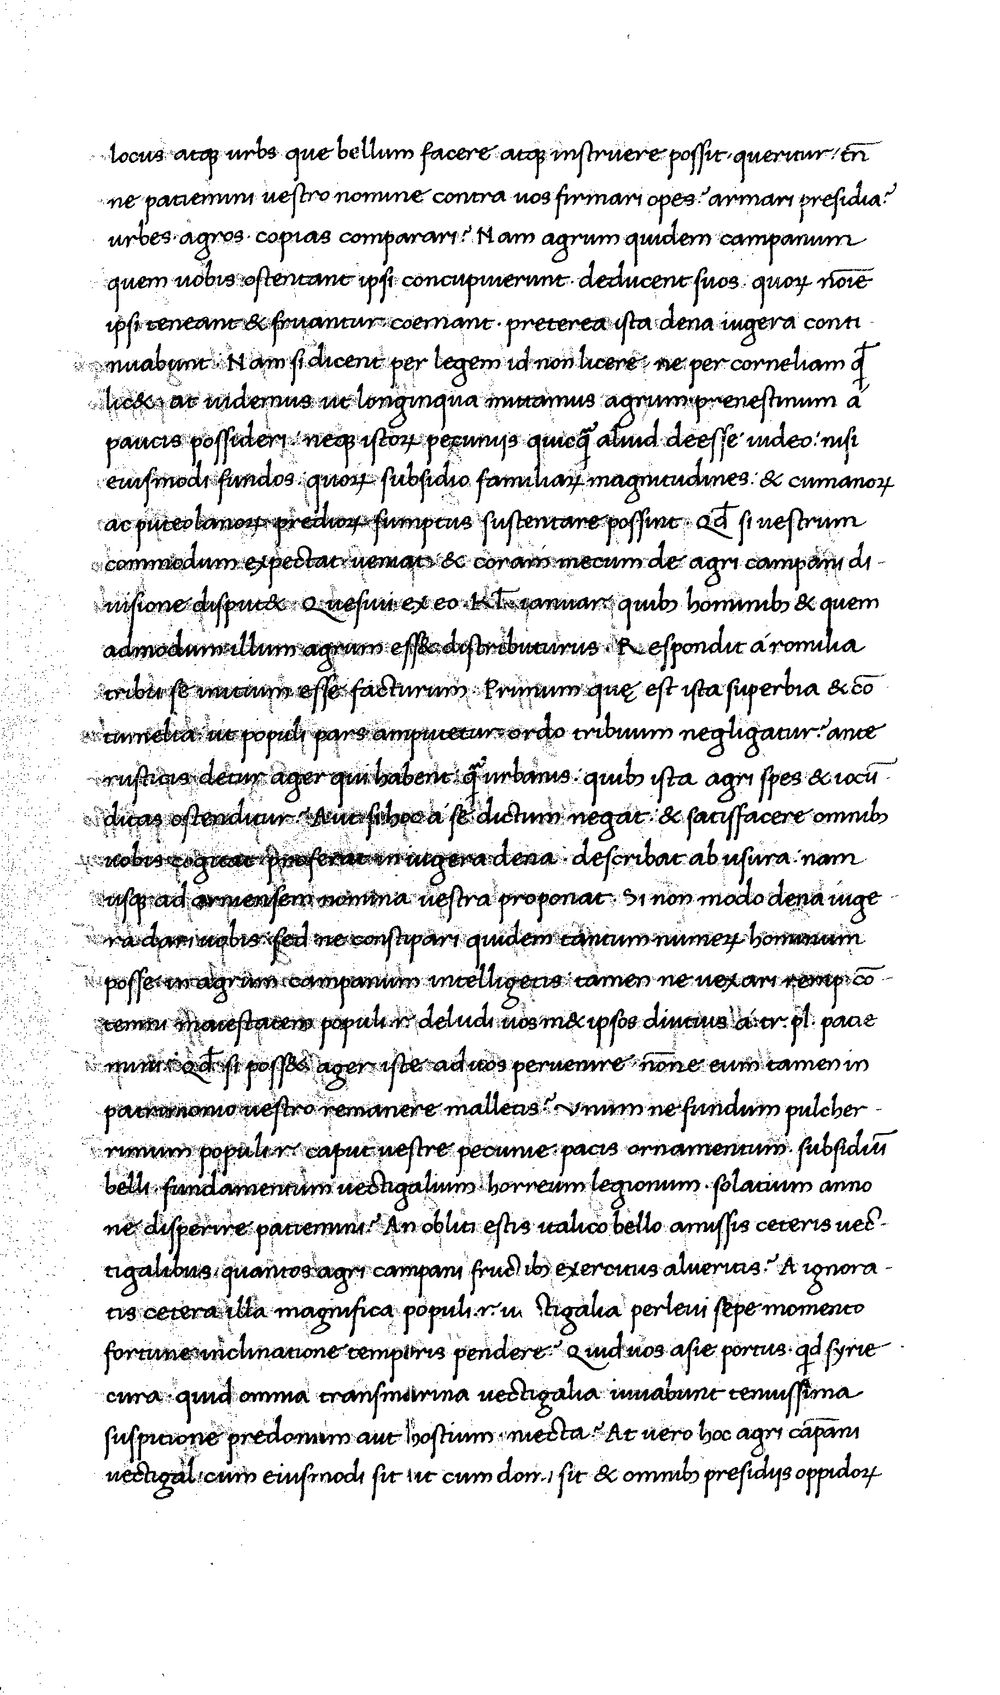 locus atqꝫ urbs que bellum facere atqꝫ instruere possit· queritur· tn̄
ne patiemini uestro nomine contra uos firmari opes? armari presidia?
urbes· agros· copias comparari? Nam agrum quidem campanum
quem uobis ostentant ipsi concupiuerunt· deducent suos· quoꝝ noīe
ipsi teneant & fruantur· coemant· preterea ista dena iugera conti
nuabunt· Nam si dicent per legem id non licere· ne per corneliam qđ
lic&· at uidemus ut longinqua mittamus agrum prenestinum a
paucis possideri· neqꝫ istoꝝ pecuniis quicq̄ aliud deesse uideo· nisi
eiusmodi fundos· quoꝝ subsidio familiaꝝ magnitudines· & cumanoꝝ
ac puteolanoꝝ predioꝝ sumptus sustentare possint· Qđ si uestrum
commodum expectat· ueniat· & coram mecum de agri campani di-
uisione disput&· Quesiui ex eo· Kł· ianuar· quibꝫ hominibꝫ & quem
admodum illum agrum ess& distributurus· Respondit á romilia
tribu se initium esse facturum· Primum quę est ista superbia & cō
tumelia· ut populi pars amputetur· ordo tribuum negligatur? ante
rusticis detur ager qui habent· q̄ urbanis· quibꝫ ista agri spes & iocū-
ditas ostenditur? Aut si hoc á se dictum negat· & satisfacere omnibꝫ
uobis cogitat proferat in iugera dena· describat ab usura· nam
usqꝫ ad armensem nomina uestra proponat· Si non modo dena iuge-
ra dari uobis· sed ne constipari quidem tantum numeꝝ hominum
posse in agrum campanum intelligetis· tamen ne uexari remp· cō-
temni maiestatem populi·r· deludi uosm&ipsos diutius á·tr·pl· patie
mini? Qđ si poss& ager iste ad uos peruenire· nōne eum tamen in
patrimonio uestro remanere malletis? Vnum ne fundum pulcher-
rimum populi·r· caput uestre pecunie· pacis ornamentum· subsidiū
belli· fundamentum uectigalium· horreum legionum· solatium anno
ne disperire patiemini? An obliti estis italico bello amissis ceteris uec-
tigalibus· quantos agri campani fructibꝫ exercitus alueritis? A ignora-
tis cetera illa magnifica populi·r· u ctigalia perleui sepe momento
fortune inclinatione temporis pendere? Quid uos asie portus· qđ syrie
cura· quid omnia transmarina uectigalia iuuabunt tenuissima
suspicione predonum aut hostium· niecta? At uero hoc agri cāpani
uectigal· cum eiusmodi sit ut cum domi sit & omnibꝫ presidiis oppidoꝝ